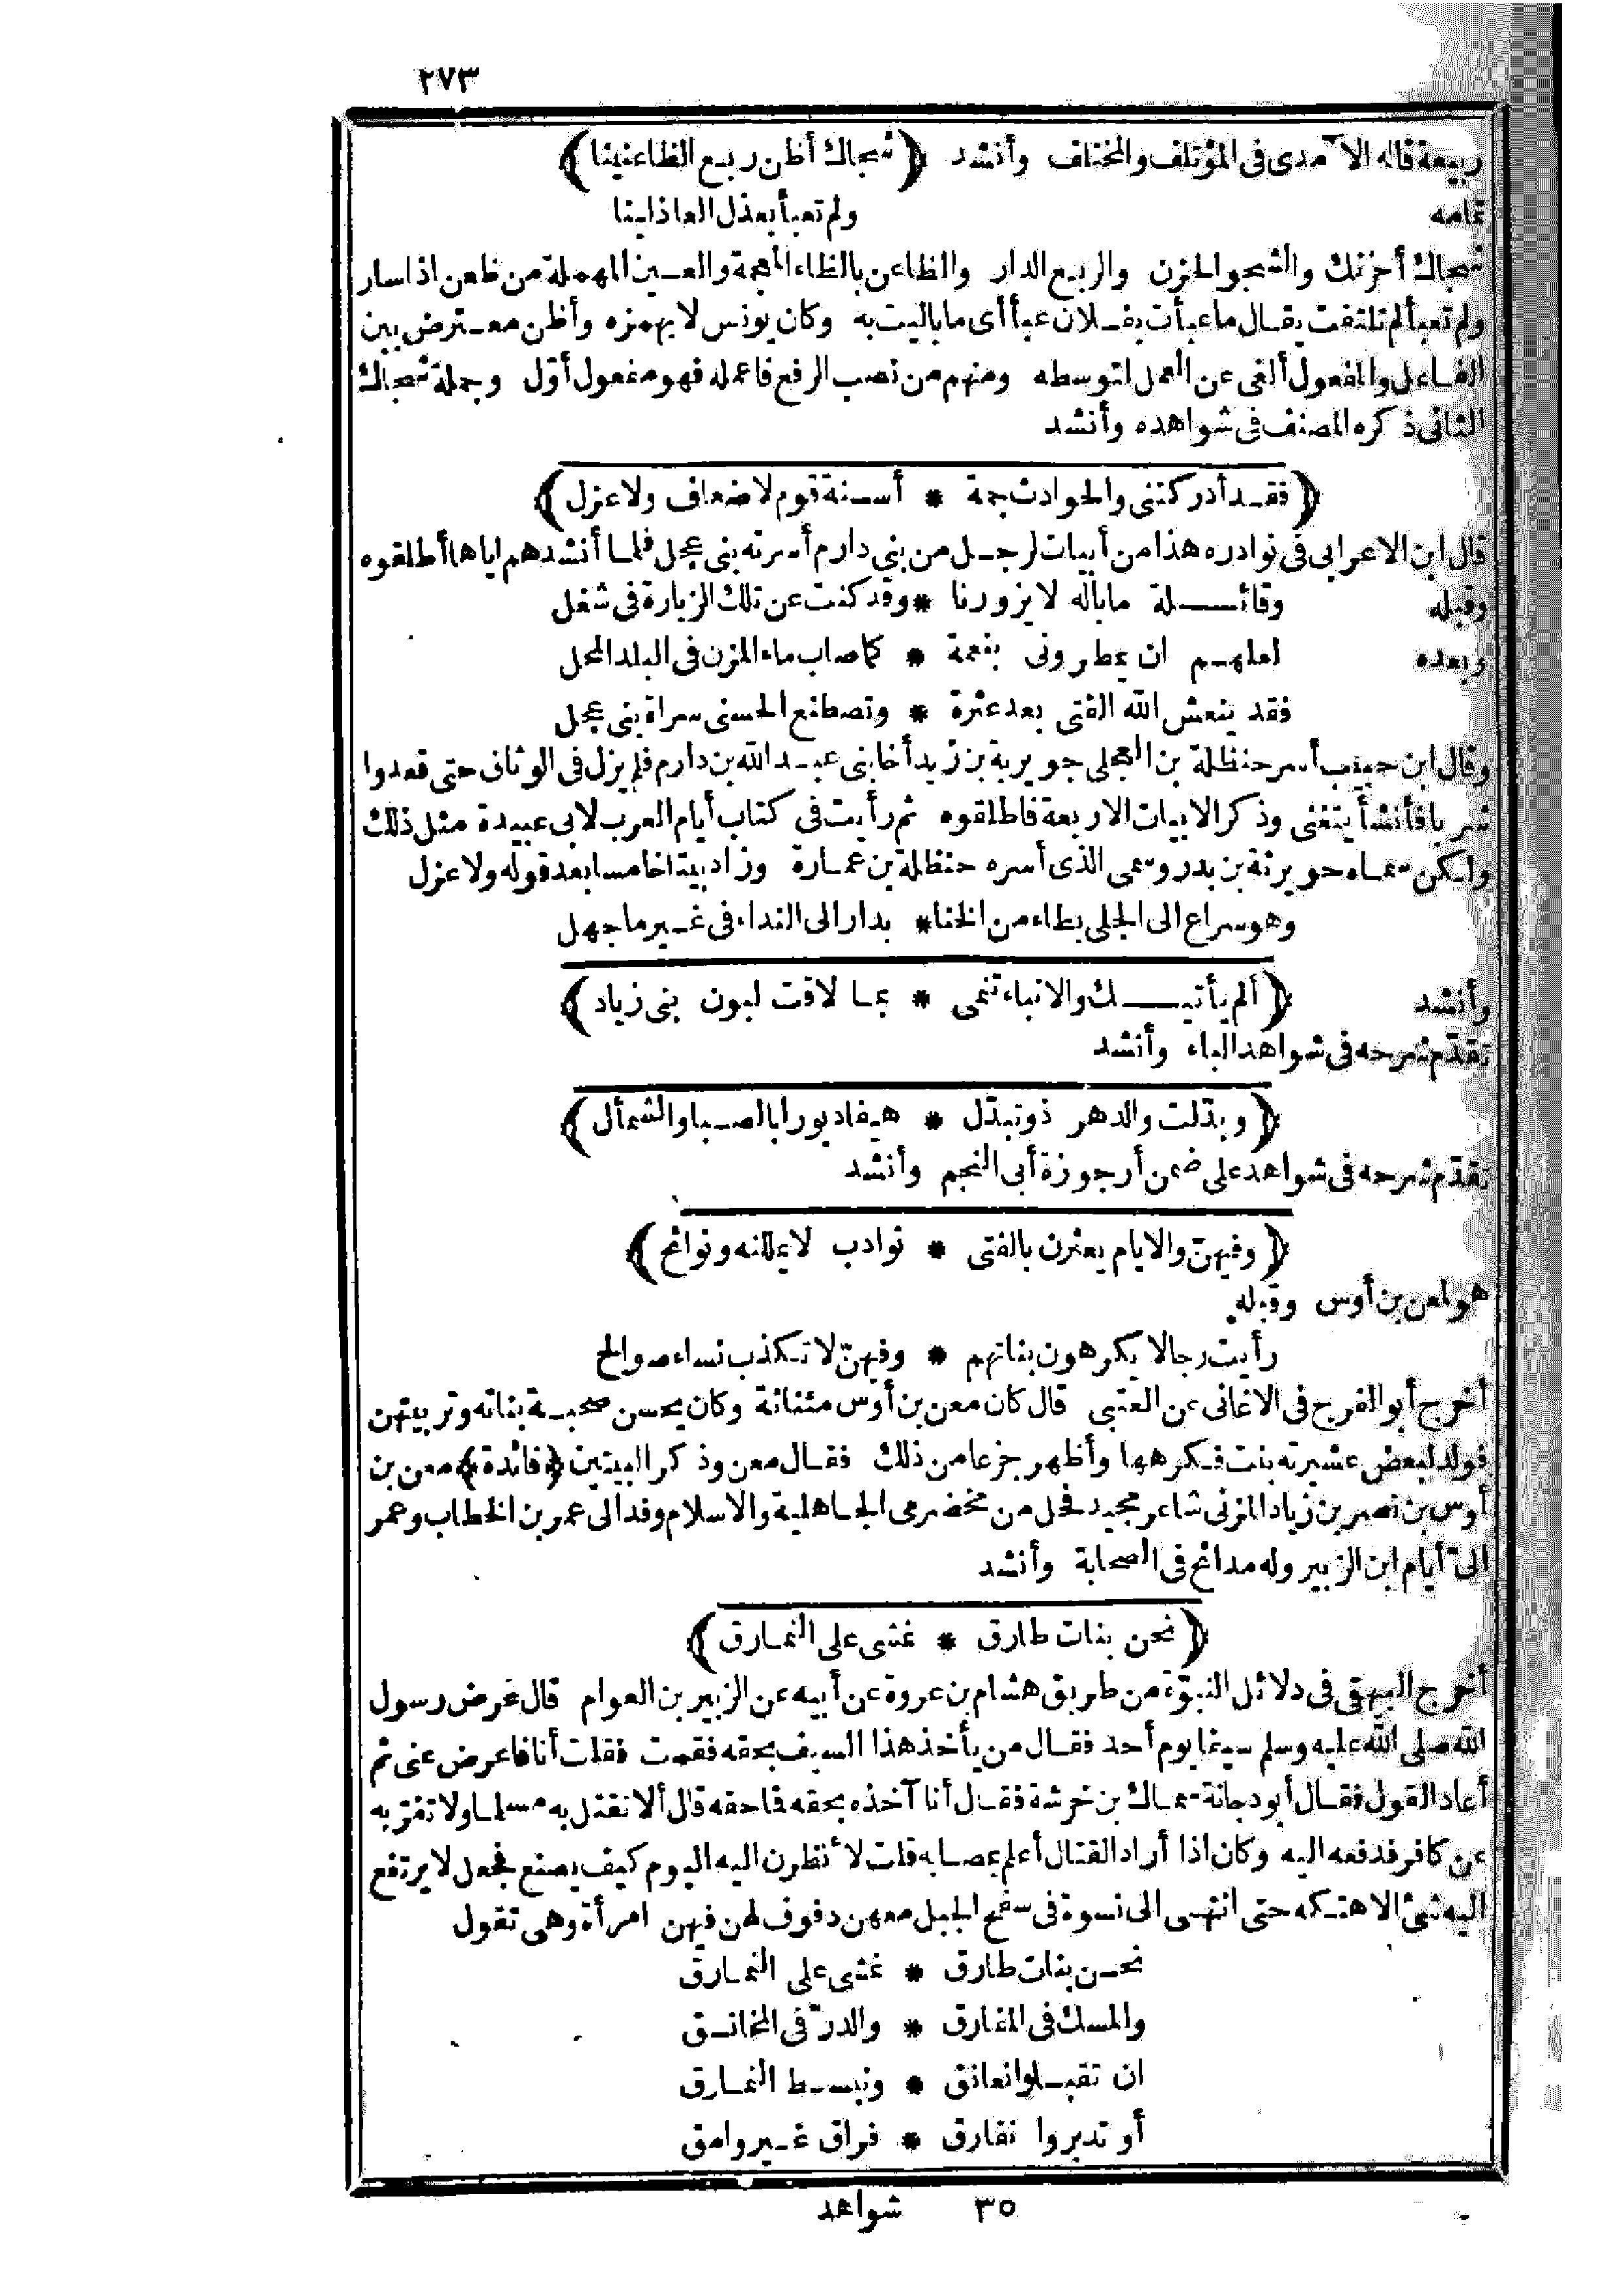 ٢٧٣
ربيعة قاله الآمدى فى المؤتلف والمختلف وأنشد ﴿شجاك أظن ربع الظاعنينا﴾
تمامه ولم تعبأ بعذل العاذلينا
شجاك أحزنك والشجو الحزن والربع الدار والظاعن بالظاء المعجمة والعين المهملة من ظعن اذا سار
ولم تعبأ لم تلتفت يقال ما عبأت بفلان عبأ أى ما باليت به وكان يونس لا يهمزه وأظن معترض بين
الفاعل والمفعول ألغى عن العمل لتوسطه ومنهم من نصب الرفع فاعمله فهو مفعول أوّل وجملة شجاك
الثانى ذكره المصنف فى شواهده وأنشد
﴿فقد أدركتنى والحوادث جمة * أسنة قوم لا ضعاف ولا عزل﴾
قال ابن الاعرابى فى نوادره هذا من أبيات لرجل من بنى دارم أسرته بنى عجل فلما أنشدهم اياها أطلقوه
وقبله وقائلة ما باله لا يزورنا * وقد كنت عن تلك الزيارة فى شغل
وبعده لعلهم ان يمطرونى بنعمة * كما صاب ماء المزن فى البلد المحل
فقد ينعش الله الفتى بعد عثرة * وتصطنع الحسنى سراة بنى عجل
وقال ابن حبيب أسر حنظلة بن العجلى جويرية بن زيد أخا بنى عبد الله بن دارم فلم يزل فى الوثاق حتى قعدوا
شربا فأنشأ يتغنى وذكر الابيات الاربعة فاطلقوه ثم رأيت فى كتاب أيام العرب لابى عبيدة مثل ذلك
ولكن سماه حويرثة بن بدر وسمى الذى أسره حنظلة بن عمارة وزاد بيتا خامسا بعد قوله ولا عزل
وهو سراع الى الجلى بطاء من الخنا * بدار الى النداء فى غير ما جهل
وأنشد ﴿ألم يأتيك والانباء تنمى * بما لاقت لبون بنى زياد﴾
تقدّم شرحه فى شواهد الباء وأنشد
﴿وبدّلت والدهر ذو تبدّل * هيفا دبورا بالصبا والشمأل﴾
تقدّم شرحه فى شواهد على ضمن أرجوزة أبى النجم وأنشد
﴿وفيهنّ والايام يعثرن بالفتى * نوادب لا يمللنه ونوائح﴾
هو لمعن بن أوس وقبله
رأيت رجالا يكرهون بناتهم * وفيهنّ لا تكذب نساء صوالح
أخرج أبو الفرج فى الاغانى عن العتبى قال كان معن بن أوس مئناثة وكان يحسن صحبة بناته وتربيتهن
فولد لبعض عشيرته بنت فكرهها وأظهر جزعا من ذلك فقال معن وذكر البيتين ﴿فائدة﴾ معن بن
أوس بن نصر بن زياد المزنى شاعر مجيد فحل من مخضرمى الجاهلية والاسلام وفد الى عمر بن الخطاب وعمر
الى أيام ابن الزبير وله مدائح فى الصحابة وأنشد
﴿نحن بنات طارق * نمشى على النمارق﴾
أخرج البيهقى فى دلائل النبوّة من طريق هشام بن عروة عن أبيه عن الزبير بن العوام قال عرض رسول
الله صلى الله عليه وسلم سيفا يوم أحد فقال من يأخذ هذا السيف بحقه فقمت فقلت أنا فاعرض عنى ثم
أعاد القول فقال أبو دجانة سماك بن خرشة فقال أنا آخذه بحقه فاحقه قال ألا نقتل به مسلما ولا تفرّ به
عن كافر فدفعه اليه وكان اذا أراد القتال أعلم بعصابه قلت لأنظرن اليه اليوم كيف يصنع فجعل لا يرتفع
اليه شئ الا هتكه حتى انتهى الى نسوة فى سفح الجبل معهن دفوف لهن فيهن امرأة وهى تقول
نحن بنات طارق * نمشى على النمارق
والمسك فى المفارق * والدرّ فى المخانق
ان تقبلوا نعانق * ونبسط النمارق
أو تدبروا نفارق * فراق غير وامق
٣٥ شواهد